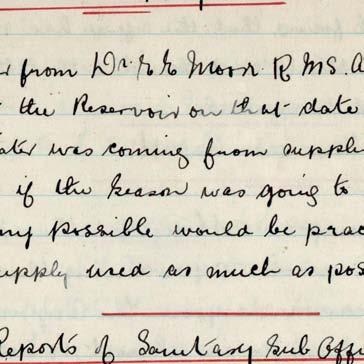 from Dr. E E Moore R.M.S. A
the Reservoir on that date
ater was coming from suppl
if the season was going to
ny possible would be prac
upply used as much as pos
Reports of Sanitary Sub Offi